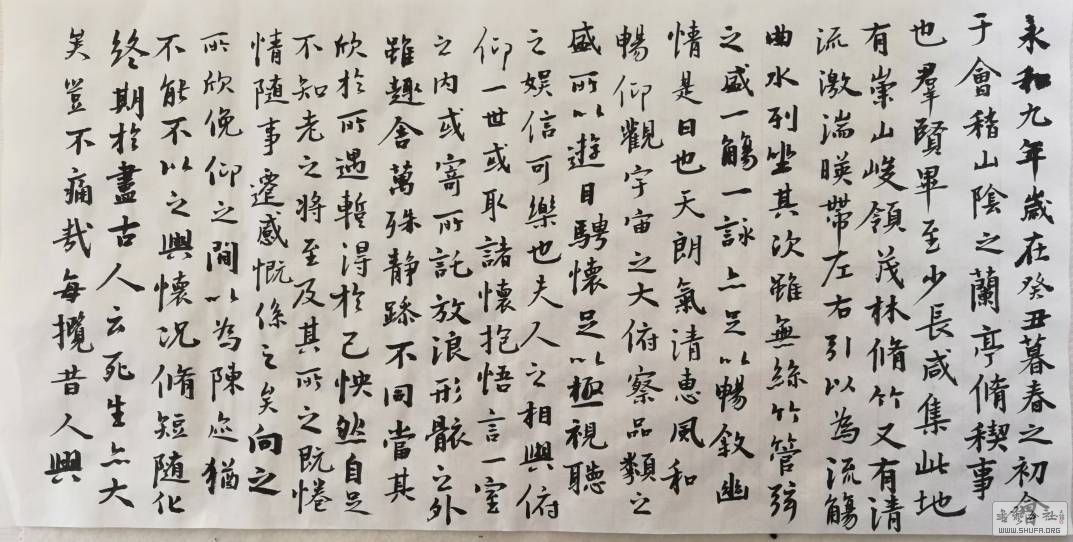 永和九年歲在癸丑暮春之初會
于會稽山陰之蘭亭脩稧事
也羣賢畢至少長咸集此地
有崇山峻領茂林脩竹又有清
流激湍暎帶左右引以為流觴
曲水列坐其次雖無絲竹管弦
之盛一觴一詠亦足以暢敘幽
情是日也天朗氣清惠風和
暢仰觀宇宙之大俯察品類之
盛所以遊目騁懷足以極視聽
之娛信可樂也夫人之相與俯
仰一世或取諸懷抱悟言一室
之內或寄所託放浪形骸之外
雖趣舍萬殊靜躁不同當其
欣於所遇暫得於己怏然自足
不知老之將至及其所之既惓
情隨事遷感慨係之矣向之
所欣俛仰之間以為陳迹猶
不能不以之興懷況脩短隨化
終期於盡古人云死生亦大
矣豈不痛哉每攬昔人興
WWW.SHUFA.ORG